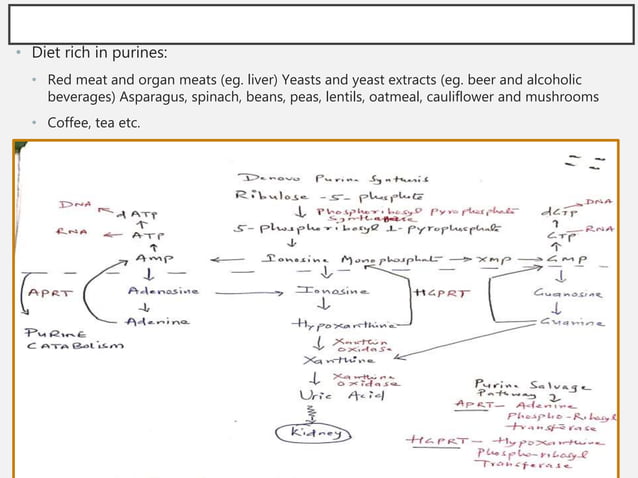 Diet rich in purines:
Red meat and organ meats (eg. liver) Yeasts and yeast extracts (eg. beer and alcoholic
beverages) Asparagus, spinach, beans, peas, lentils, oatmeal, cauliflower and mushrooms
Coffee, tea etc.
Denovo Purine Synthesis
Ribulose - 5 - phosphate
DNA dATP Phosphoribosyl Pyrophosphate dGTP DNA
Synthetase
RNA ATP 5 - phosphoribosyl 1 - pyrophosphate GTP RNA
AMP Ionosine Monophosphat XMP GMP
APRT Adenosine Ionosine HGPRT Guanosine
Adenine Hypoxanthine Guanine
PURINE
CATABOLISM
Xanthin
oxidase
Xanthine
Xanthine
oxidase
Uric Acid
Kidney
Purine Salvage
Pathway
APRT - Adenine
Phospho-Ribosyl
transferase
HGPRT - Hypoxanthine
Phospho-ribosyl
Transferase